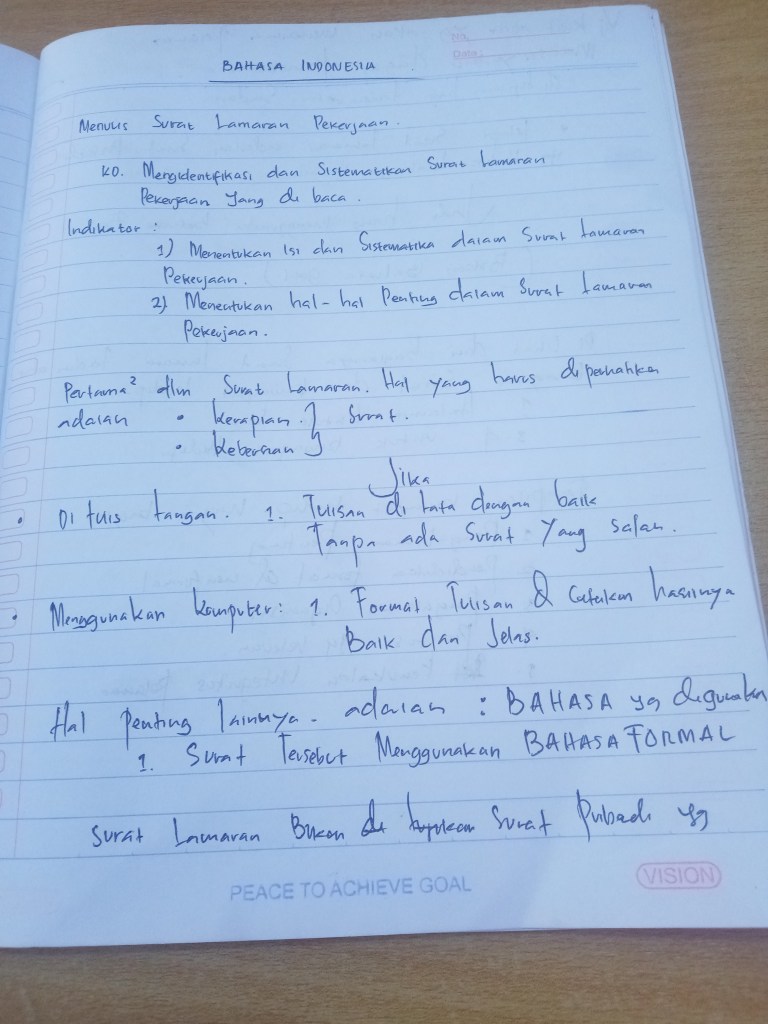 No.
Date :
BAHASA INDONESIA
Menulis Surat Lamaran Pekerjaan.
KD. Mengidentifikasi dan Sistematikan Surat Lamaran
Pekerjaan yang di baca.
Indikator :
1) Menentukan Isi dan Sistematika dalam Surat Lamaran
Pekerjaan.
2) Menentukan hal-hal Penting dalam Surat Lamaran
Pekerjaan.
Pertama² dlm Surat Lamaran. Hal yang harus diperhatikan
adalah • kerapian. } Surat.
• kebersihan
Jika
• Di tulis tangan. 1. Tulisan di tata dengan baik
Tanpa ada Surat yang salah.
• Menggunakan komputer: 1. Format Tulisan & Cetakan hasilnya
Baik dan Jelas.
Hal penting lainnya. adalah : BAHASA yg digunakan
1. Surat Tersebut Menggunakan BAHASA FORMAL
Surat Lamaran Bukan Surat Pribadi yg
PEACE TO ACHIEVE GOAL
VISION